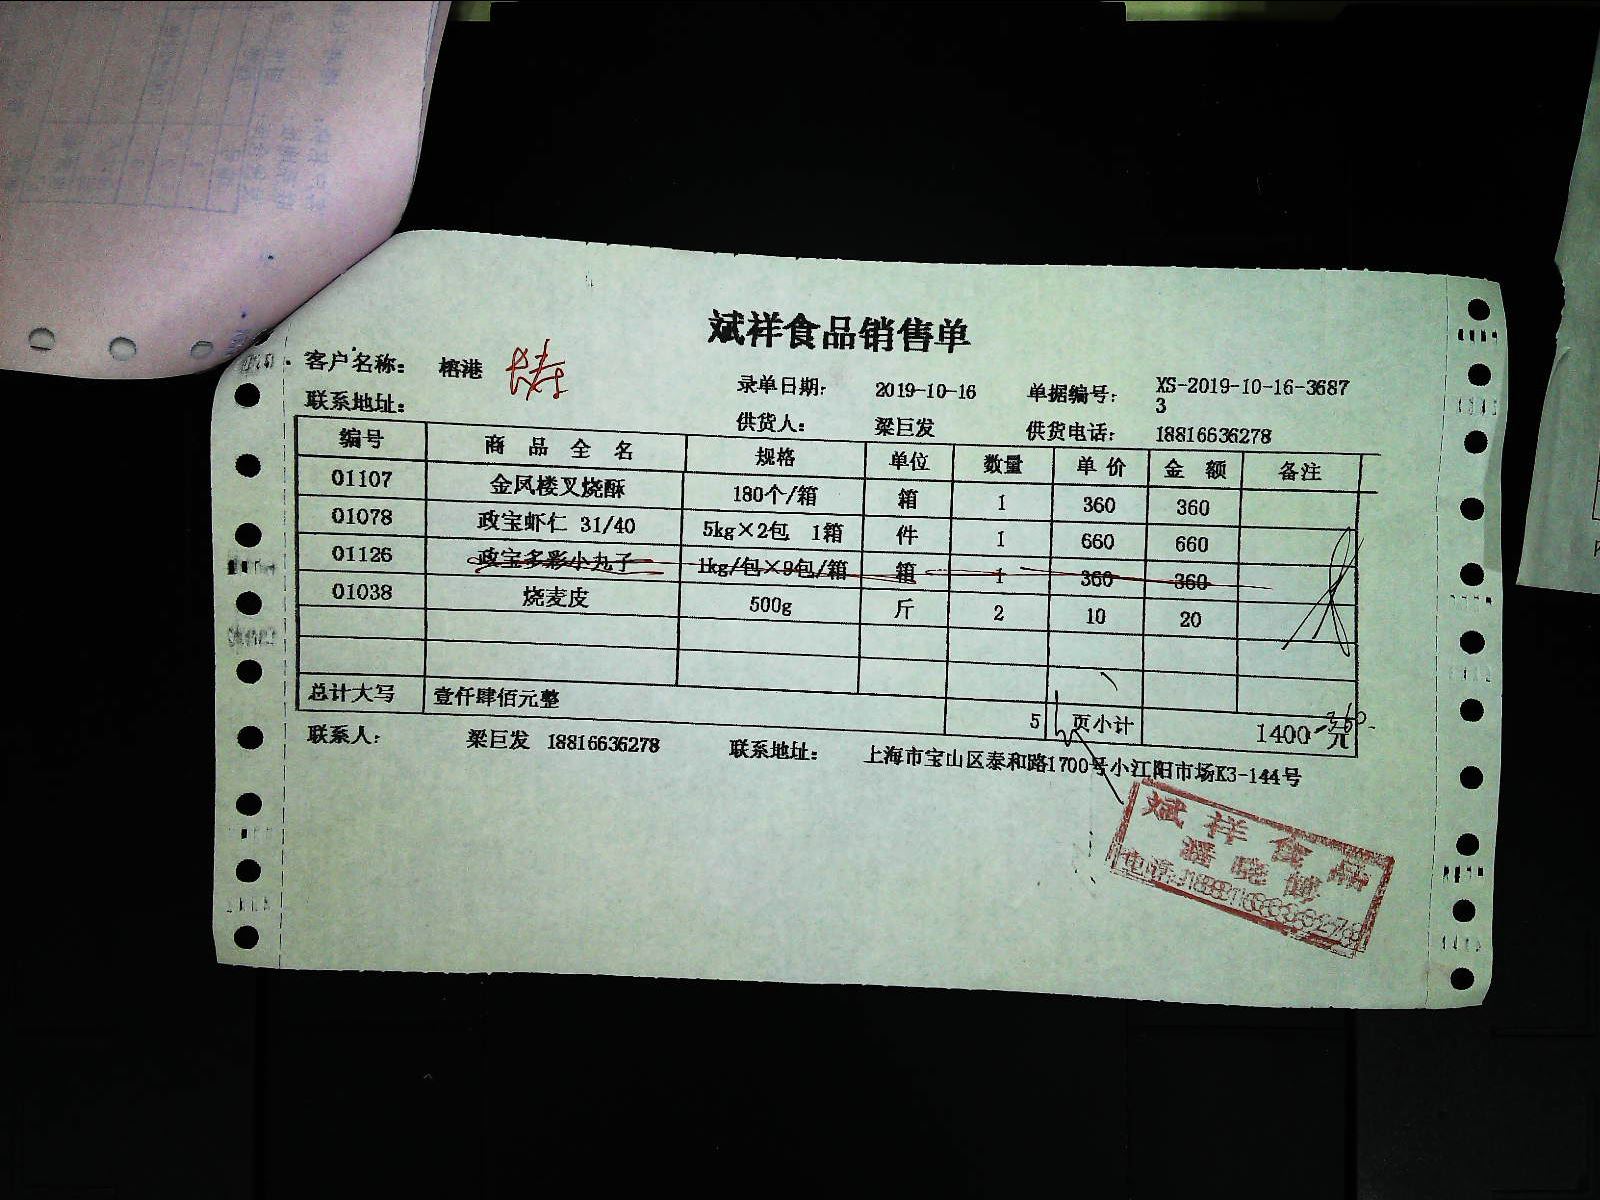 斌祥食品销售单
客户名称： 榕港
录单日期： 2019-10-16 单据编号： XS-2019-10-16-36873
联系地址：
供货人： 梁巨发 供货电话： 18816636278
编号 商品全名 规格 单位 数量 单价 金额 备注
01107 金凤楼叉烧酥 180个/箱 箱 1 360 360
01078 政宝虾仁 31/40 5kg×2包 1箱 件 1 660 660
01126 政宝多彩小丸子 1kg/包×9包/箱 箱 1 360 360
01038 烧麦皮 500g 斤 2 10 20
总计大写 壹仟肆佰元整 5 页小计 1400-360元
联系人： 梁巨发 18816636278 联系地址： 上海市宝山区泰和路1700号小江阳市场K3-144号
斌祥食品
电话:18816636278